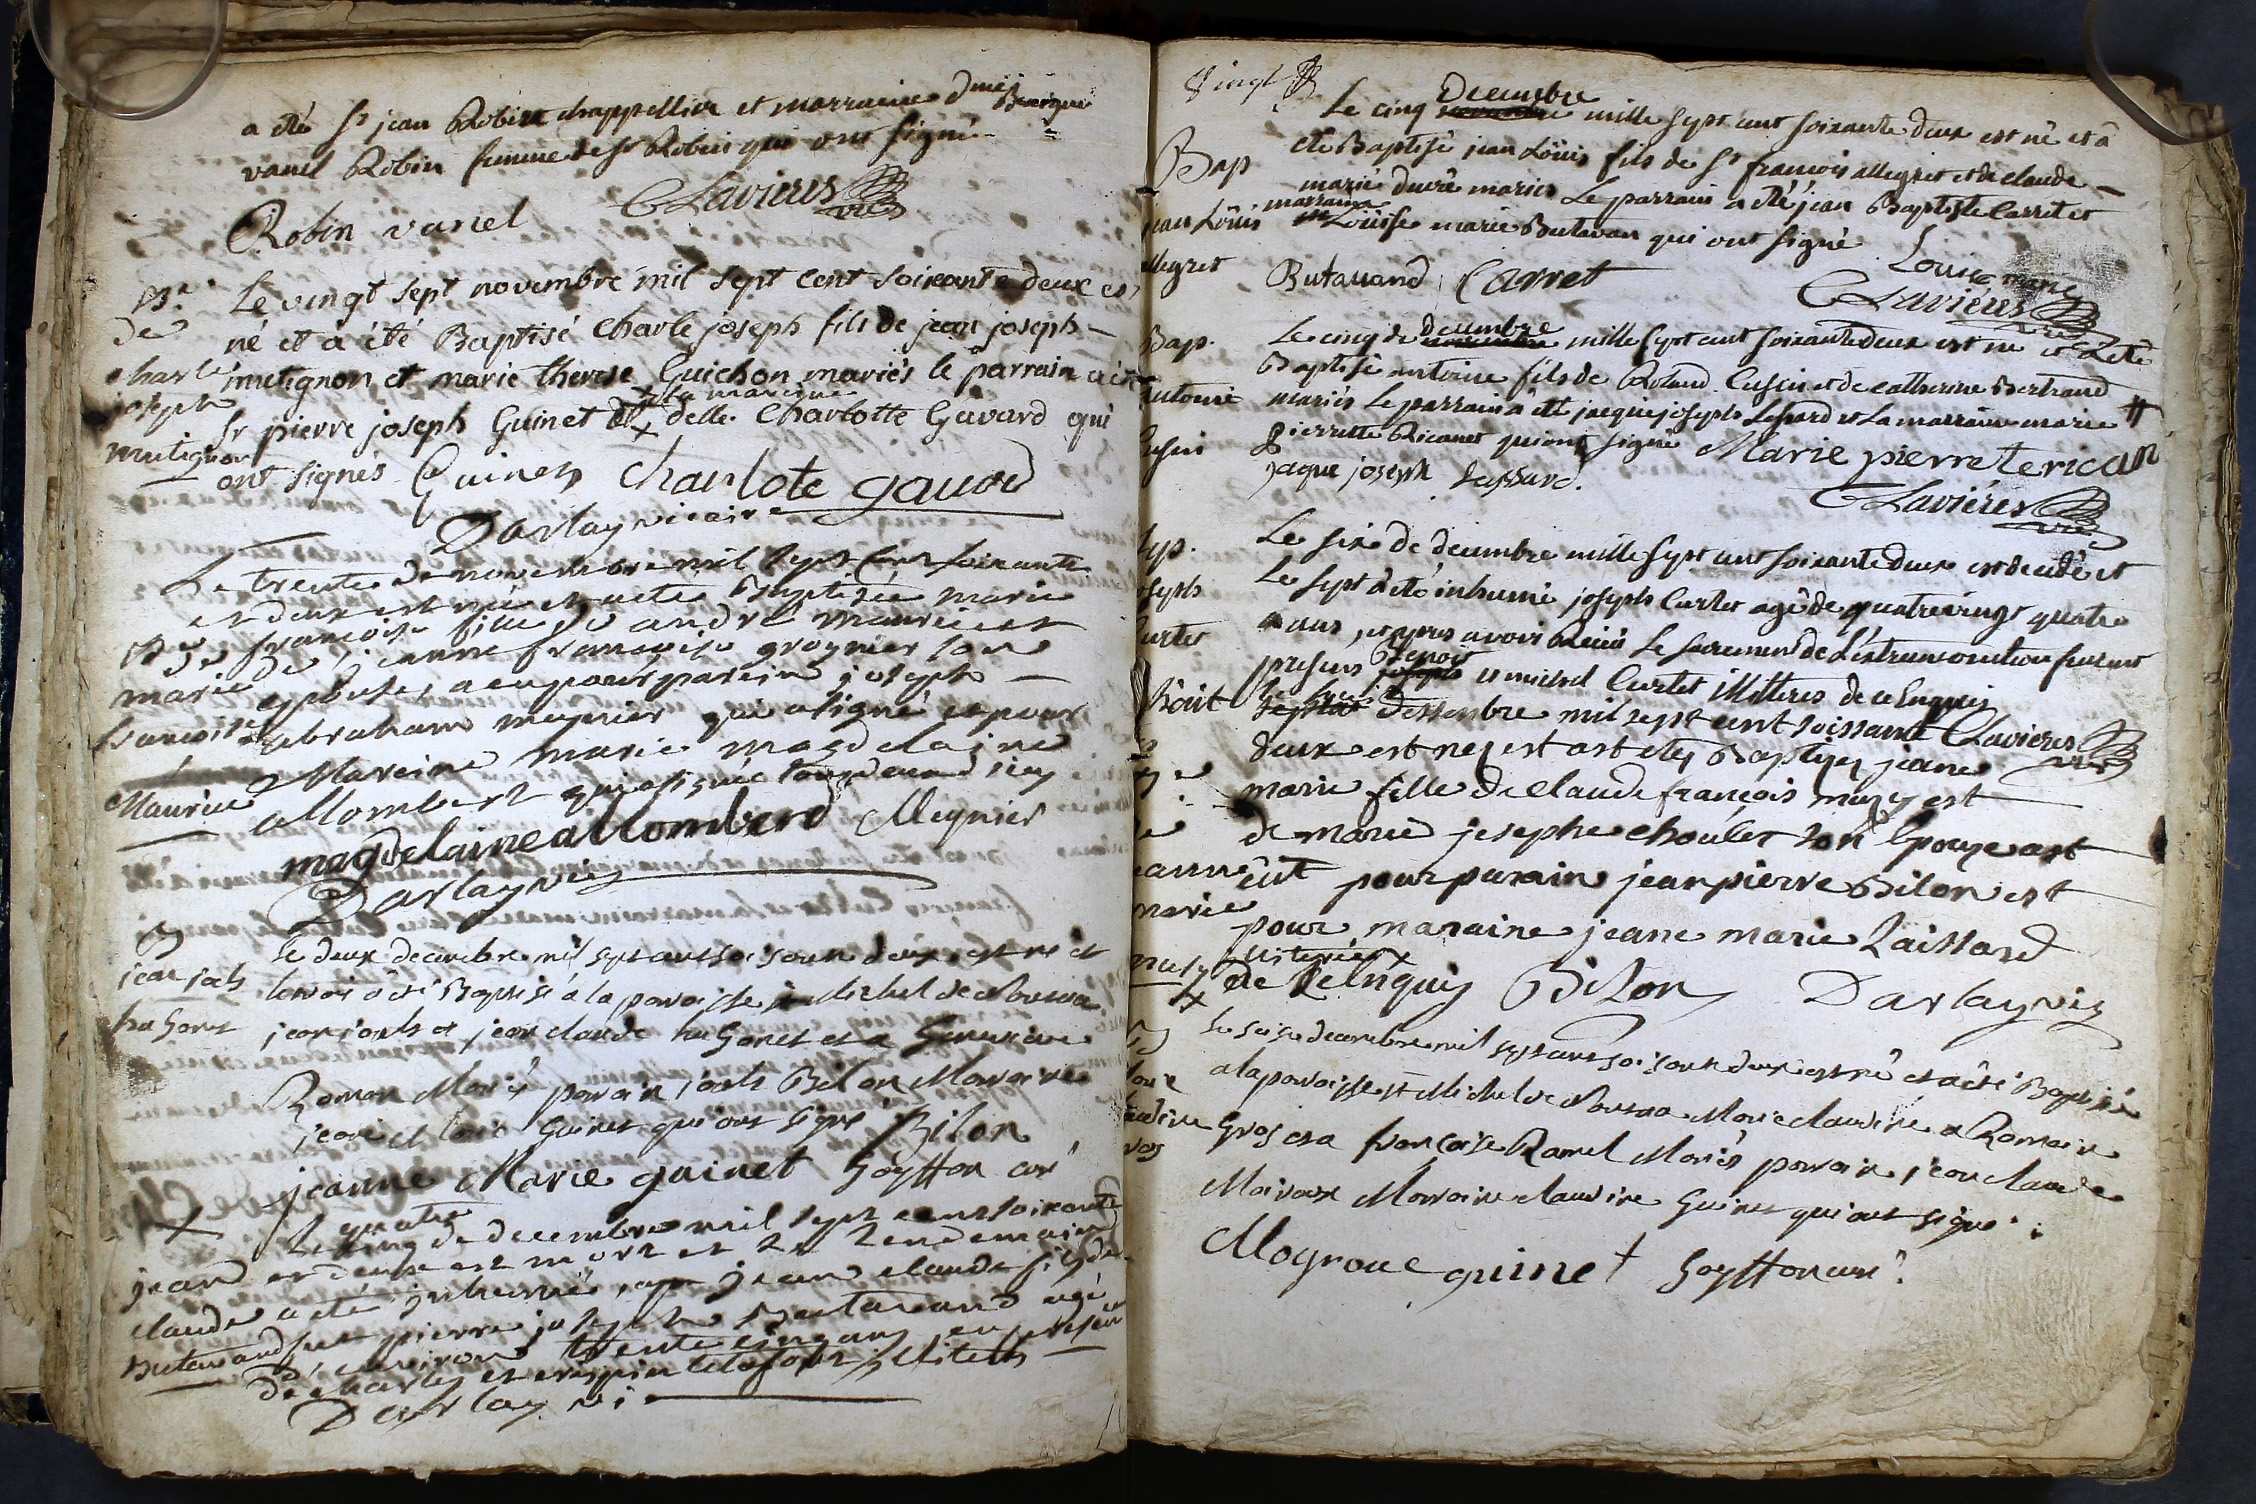 a été sr jean Robin chappellier et marraine dmes
vanel Robin femme de sr Robin qui ont signé
Robin vanel CLavieres vre
Bme de charle joseph mutignon
Le vingt sept novembre mil sept cent soixante deux es
né et a été Baptisé charle joseph fils de jean joseph
mutignon et marie therese Guichon mariés le parrain a été
sr pierre joseph Guinet et la maraine delle Charlotte Gavard qui
ont signés Guinet charlote gavard
Darlay vicaire
Bme de marie francoise Maurice
Le trente de novembre mil sept cent soixante
et deux est née et a eté Baptisée marie
francoise fille d andré maurice et
de jeanne francoise grognier son
epouse, a eu pour parrin joseph
abraham meynier qui a signé et pour
Mareine marie magdelaine
allombert qui a signé
magdelaine allomberd Meynier
Darlay vic
B
jean jach hugonet
le deux decembre mil sept cent soisoun deux est né et
a été Baptisé a la paroisse st Michel de
jean jach et jean claude hugonet et a
Roman Mariés parain jach Bilon Maraine
jeane Marie Guinet qui ont signé Bilon
jeanne Marie guinet Goyffon curé
jean claude Butavand
Le quatre de decembre mil sept cent soixante
et deux est mort et le lendemain
a eté inhumé, jean claude fils de
feu pierre joseph Butavand agé
d'environ trente cinq ans en presence
de charles et crispin illiterés
Darlay vi
Vingt
Bap jean Loüis allegret
Le cinq decembre mille sept cent soixante deux est né et à
eté Baptisé jean Loüis fils de sr francois allegret et de claude
marie ducré mariés Le parrain a été jean Baptiste Carret et
marraine Loüise marie Butavan qui ont signé Louise marie
Butavand Carret CLaviéres vre
Bap. antoine Cusin
Le cinq de decembre mille sept cent soixante deux est né et à eté
Baptisé antoine fils de Roland Cusin et de catherine Bertrand
mariés Le parrain a été jacque joseph Lessard et La marraine marie
pierrette Ricanet qui ont signé Marie pierrete rican
jaque joseph Lessard. CLaviéres vre
sep. joseph Curlet
Le six de decembre mille sept cent soixante deux est decedé et
Le sept à eté inhumé joseph Curlet agé de quatre vingt quatre
ans, et apres avoir Recus Le sacrement de L'extremonction furent
presens Benoit et michel Curlet illiteres de ce Enquis
CLavieres vre
Le huit dessenbre mil sept cent soissante
deux est ney est ast etey Baptizey jeane
marie fille de claude françois muzy est
de marie josephe choulet son Epouze ast
eüt pour parain jean pierre Bilon est
pour maraine jeane marie Laissard
illiterée de ce Enquis Bilon Darlay vic
jeanne marie muzy
le seise decembre mil sept cent soisoun deux est né et a été Baptisé
a la paroisse st Michel de Marie claudine a Romain
Gros et a francoise Ramel Mariés parain jean claude
Mairoux Marraine claudine Guinet qui ont signé
Mogroue guinet Goyffon curé